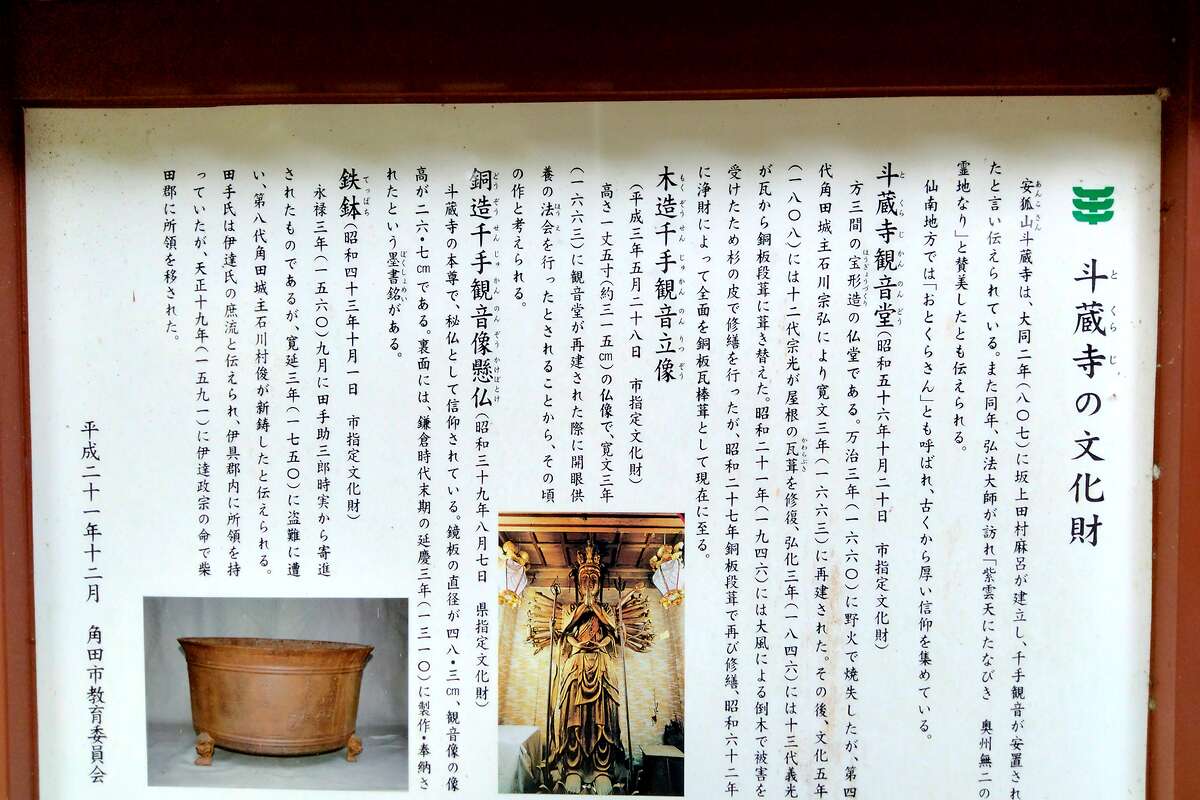 斗蔵寺の文化財
とくらじ
安狐山斗蔵寺は、大同二年(八〇七)に坂上田村麻呂が建立し、千手観音が安置され
あんこさん
たと言い伝えられている。また同年、弘法大師が訪れ「紫雲天にたなびき 奥州無二の
霊地なり」と賛美したとも伝えられる。
仙南地方では「おとくらさん」とも呼ばれ、古くから厚い信仰を集めている。
斗蔵寺観音堂(昭和五十六年十月二十日 市指定文化財)
とくらじかんのんどう
方三間の宝形造の仏堂である。万治三年(一六六〇)に野火で焼失したが、第四
ほうぎょうづくり
代角田城主石川宗弘により寛文三年(一六六三)に再建された。その後、文化五年
(一八〇八)には十二代宗光が屋根の瓦葺を修復、弘化三年(一八四六)には十三代義光
かわらぶき
が瓦から銅板段葺に葺き替えた。昭和二十一年(一九四六)には大風による倒木で被害を
受けたため杉の皮で修繕を行ったが、昭和二十七年銅板段葺で再び修繕、昭和六十二年
に浄財によって全面を銅板瓦棒葺として現在に至る。
木造千手観音立像
もくぞうせんじゅかんのんりつぞう
(平成三年五月二十八日 市指定文化財)
高さ一丈五寸(約三一五cm)の仏像で、寛文三年
(一六六三)に観音堂が再建された際に開眼供
養の法会を行ったとされることから、その頃
ほうえ
の作と考えられる。
銅造千手観音像懸仏(昭和三十九年八月七日 県指定文化財)
どうぞうせんじゅかんのんぞうかけぼとけ
斗蔵寺の本尊で、秘仏として信仰されている。鏡板の直径が四八・三cm、観音像の像
高が二六・七cmである。裏面には、鎌倉時代末期の延慶三年(一三一〇)に製作・奉納さ
れたという墨書銘がある。
ぼくしょめい
鉄鉢(昭和四十三年十月一日 市指定文化財)
てっぱち
永禄三年(一五六〇)九月に田手助三郎時実から寄進
されたものであるが、寛延三年(一七五〇)に盗難に遭
い、第八代角田城主石川村俊が新鋳したと伝えられる。
田手氏は伊達氏の庶流と伝えられ、伊具郡内に所領を持
っていたが、天正十九年(一五九一)に伊達政宗の命で柴
田郡に所領を移された。
平成二十一年十二月 角田市教育委員会